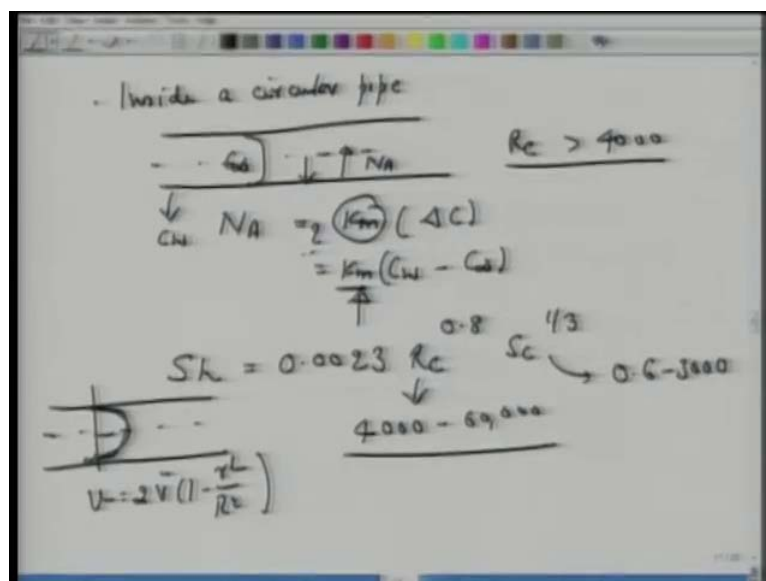 . Inside a circular pipe
C∞ N_A Re > 4000
C_w N_A = K_m (ΔC)
= K_m (C_w - C∞)
Sh = 0.0023 Re^0.8 Sc^1/3 → 0.6-3000
4000 - 60,000
V = 2 V̄ (1 - r²/R²)